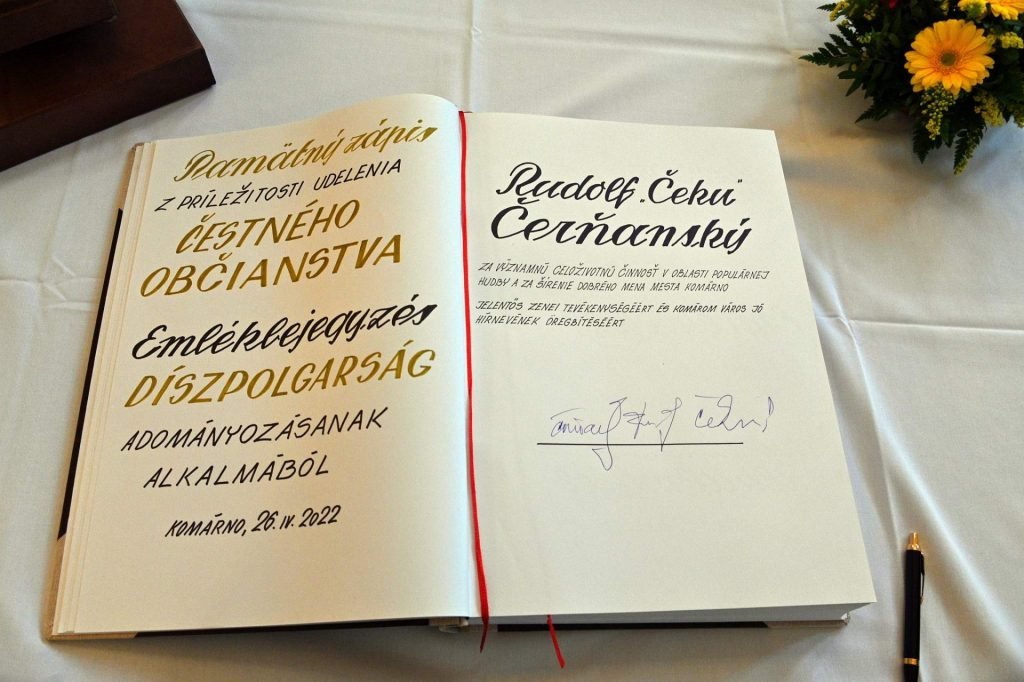 Pamätný zápis
Z PRÍLEŽITOSTI UDELENIA
ČESTNÉHO
OBČIANSTVA
Emlékbejegyzés
DÍSZPOLGARSÁG
ADOMÁNYOZÁSANAK
ALKALMÁBÓL
KOMÁRNO, 26. IV. 2022
Rudolf „Čeku"
Čerňanský
ZA VÝZNAMNÚ CELOŽIVOTNÚ ČINNOSŤ V OBLASTI POPULÁRNEJ
HUDBY A ZA ŠÍRENIE DOBRÉHO MENA MESTA KOMÁRNO
JELENTŐS ZENEI TEVÉKENYSÉGÉÉRT ÉS KOMÁROM VÁROS JÓ
HÍRNEVÉNEK ÖREGBÍTÉSÉÉRT